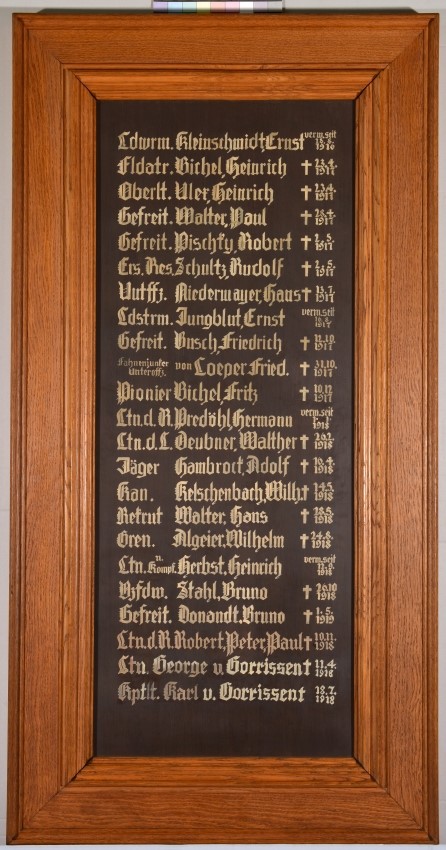 Ldwrm. Kleinschmidt, Ernst verm. seit 1916
Fldatr. Bichel, Heinrich † 23.4. 1917
Oberlt. Uler, Heinrich † 23.4. 1917
Gefreit. Walter, Paul † 28.4. 1917
Gefreit. Pischky, Robert † 2.5. 1917
Ers. Res. Schultz, Rudolf † 2.5. 1917
Untffz. Niedermayer, Hans † 13.7. 1917
Ldstrm. Jungblut, Ernst verm. seit 1917
Gefreit. Busch, Friedrich † 11.10. 1917
Fahnenjunker Unteroffz. von Loeper Fried. † 31.10. 1917
Pionier Bichel, Fritz † 10.12. 1917
Ltn. d. R. Predöhl, Hermann verm. seit 1918
Ltn. d. L. Deubner, Walther † 20.2. 1918
Jäger Hambrock, Adolf † 16.4. 1918
Kan. Ketschenbach, Wilh. † 14.5. 1918
Rekrut Walter, Hans † 28.5. 1918
Gren. Algeier, Wilhelm † 24.8. 1918
Ltn. u. Kompf. Herbst, Heinrich verm. seit 12.9. 1918
Vzfdw. Stahl, Bruno † 20.10 1918
Gefreit. Donandt, Bruno † 1.5. 1919
Ltn. d. R. Robert, Peter, Paul † 10.11. 1918
Ltn. George v. Gorrissen † 11.4. 1918
Kptlt. Karl v. Gorrissen † 18.7. 1918